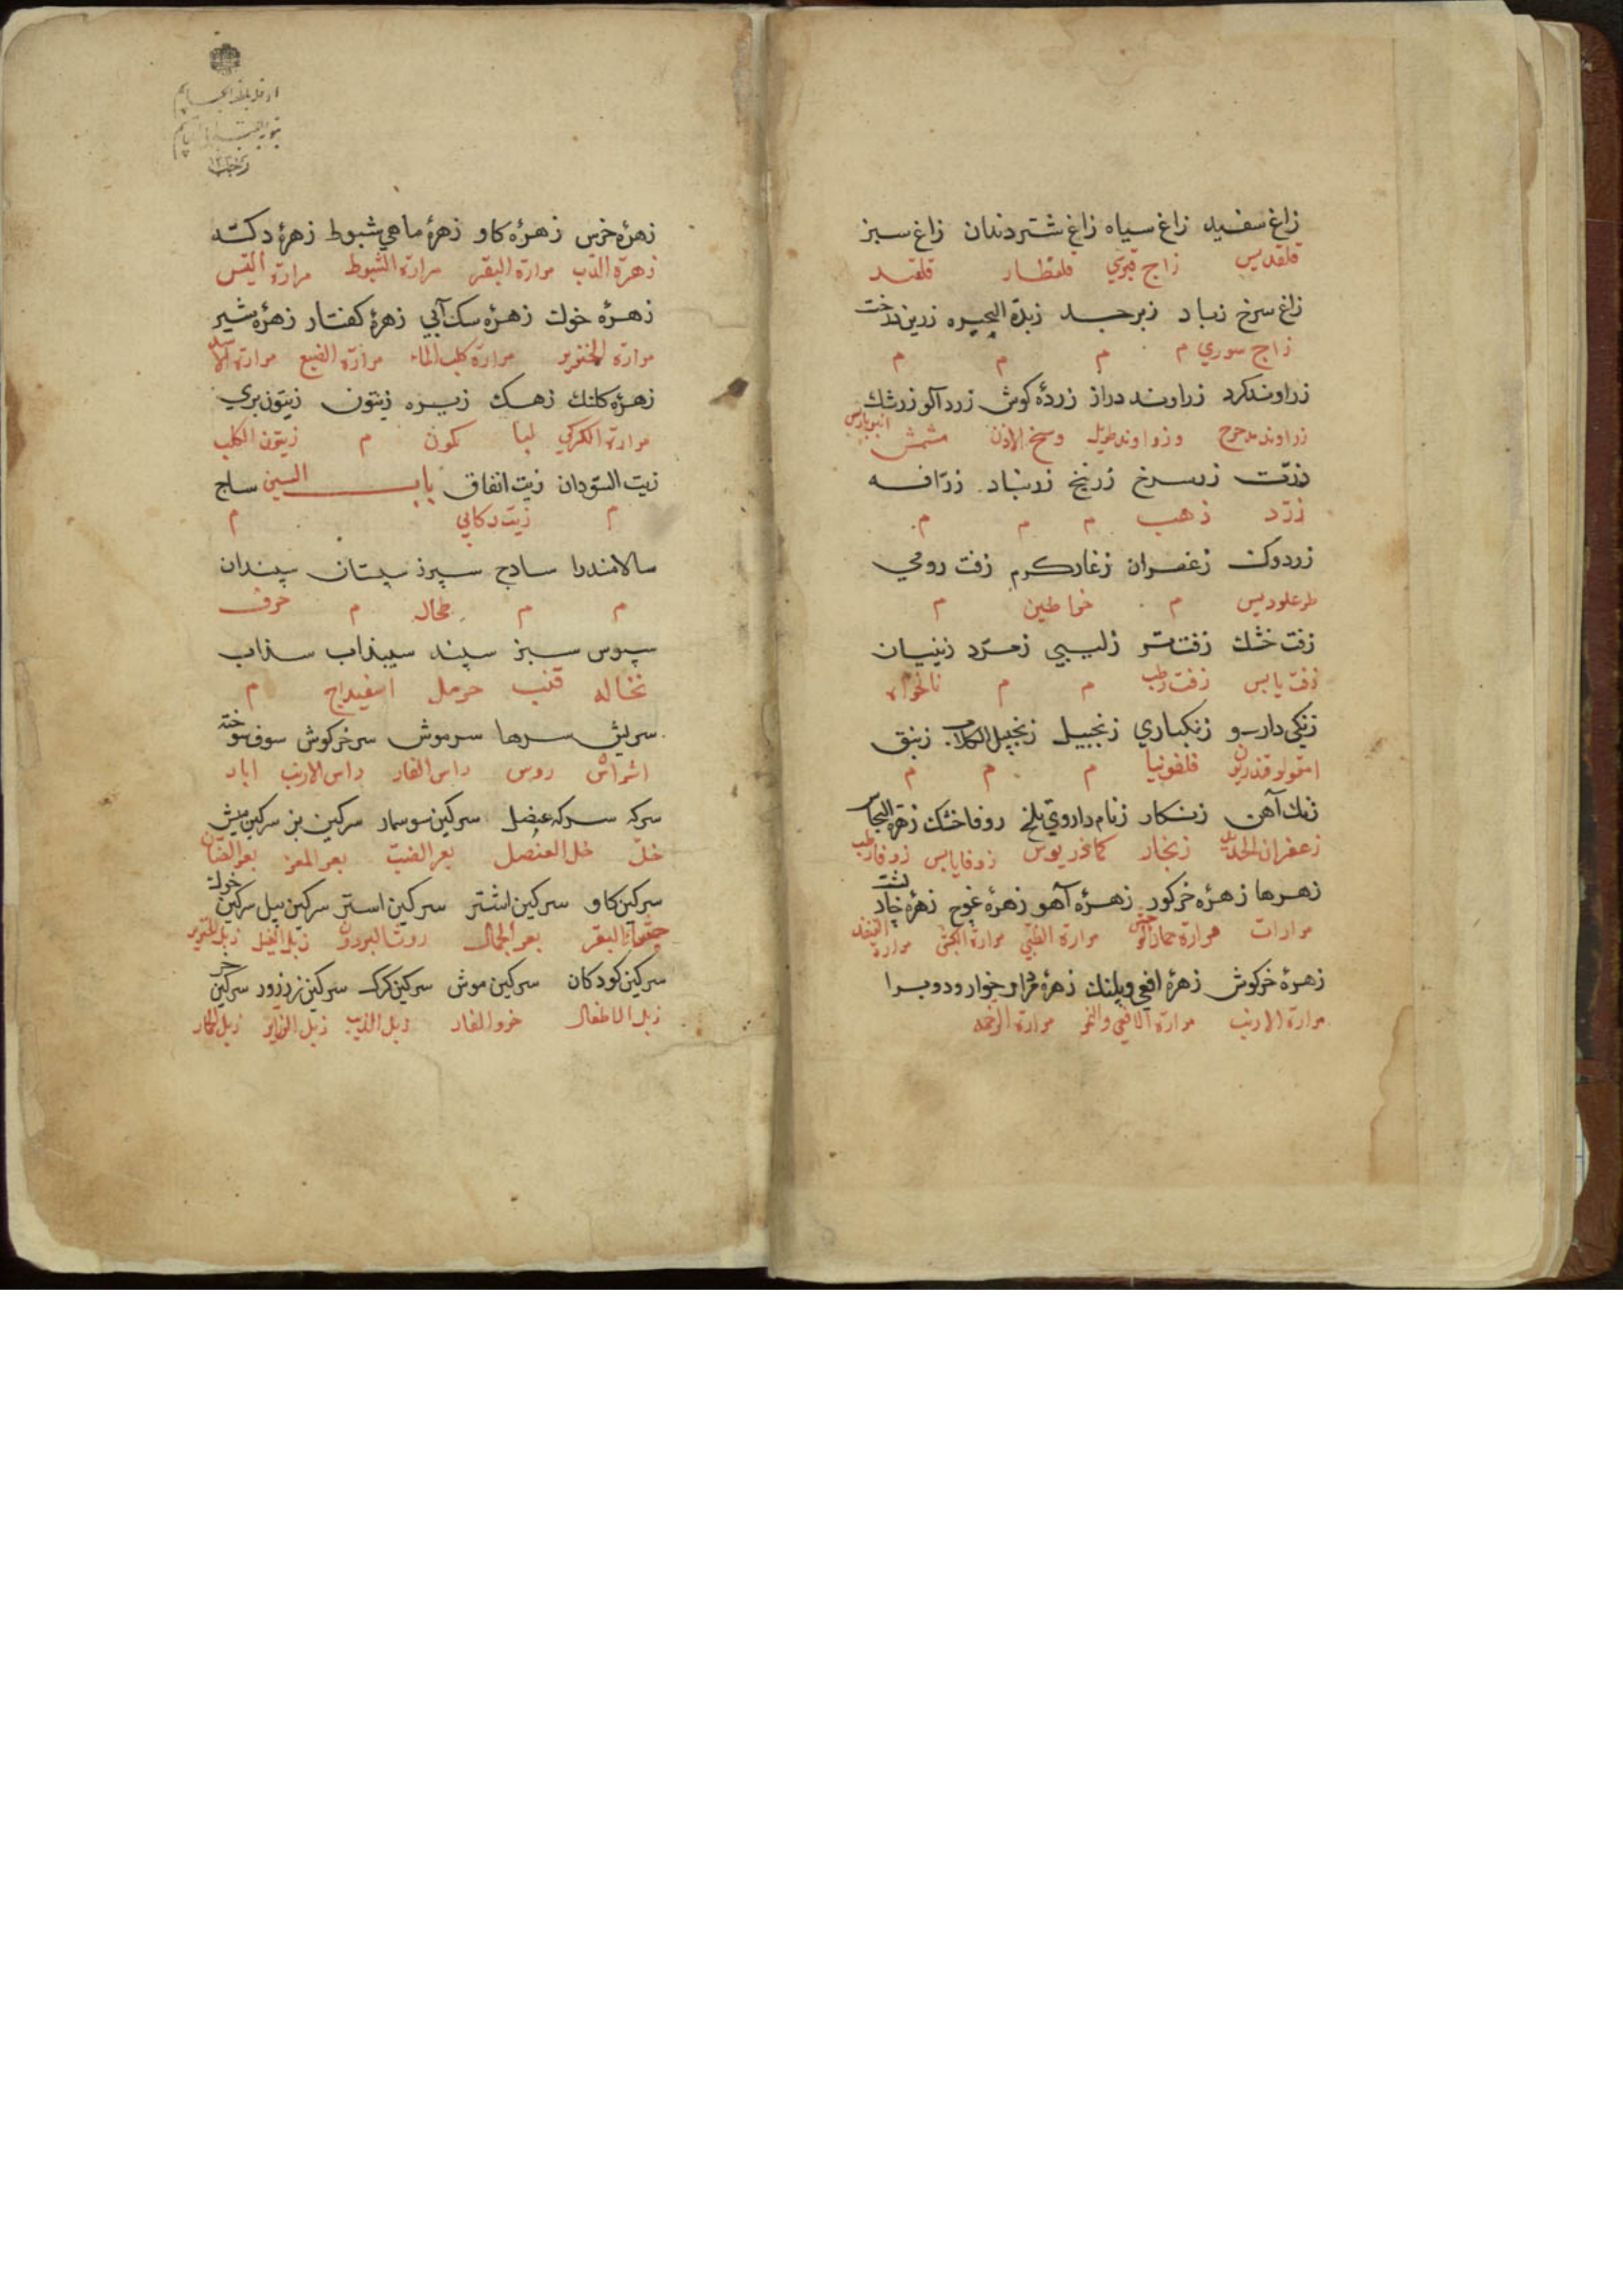 زاغ سفید زاغ سیاه زاغ شتر دندان زاغ سبز
قلقدیس زاج قبرسي قلقطار قلقند
زاغ سرخ زباد زبرجد زبدة البحیره زرین درخت
زاج سوري م م م م
زراوند کرد زراوند دراز زردۀ کوش زرد آلو زرشك
زراوند مدحرج وزراوند طویل وسخ الاذن مشمش انبرباریس
زرّت زر سرخ زرنیخ زرنباد زرّافه
زرّد ذهب م م م
زردوک زعفران زغار کرم زفت رومي
م خراطین م
زفت خشك زفت تر زلیبي زمرّد زنیان
زفت یابس زفت رطب م م نانخواه
زنکي دارو زنکباري زنجبیل زنجبیل الکلاب زنبق
قلفونیا م م م
زنك آهن زنکار زنام داروي تلخ زوفا خشك زهرة النحاس
زعفران الحدید زنجار کمادریوس زوفا یابس زوفا رطب
زهرها زهرۀ خرکور زهرۀ آهو زهرۀ غوج زهرۀ خار پشت
مرارات مرارة حمار الوحش مرارة الظبي مرارة الکبش مرارة القنفد
زهرۀ خرکوش زهرۀ افعي و پلنك زهرۀ مردار خوار و دوبرا
مرارة الارنب مرارة الافعي والنمر مرارة الرخمه
زهرۀ خرس زهرۀ کاو زهرۀ ماهي شبوط زهرۀ دکته
زهرة الدب مرارة البقر مرارة الشبوط مرارة التیس
زهرۀ خوك زهرۀ سك آبي زهرۀ کفتار زهرۀ شیر
مرارة الخنزیر مرارة کلب الماء مرارة الضبع مرارة الاسد
زهرۀ کلنك زهك زیره زیتون زیتون بري
مرارة الکرکي لبا کمون م زیتون الکلب
زیت السودان زیت انفاق باب السین ساج
م زیت رکابي م
سالامندرا سادج سپرز سپستان سپندان
م م طحال م حرف
سبوس سبز سپند سپیذاب سذاب
نخاله قنب حرمل اسفیداج م
سریش سرها سر موش سر خرکوش سرف سوخته
اشراش روس راس الفار راس الارنب ابار
سرکه سرکه عنصل سرکین سوسمار سرکین بز سرکین میش
خلّ خل العنصل بعر الضبّ بعر المعز بعر الضان
سرکین کاو سرکین اشتر سرکین استر سرکین پیل سرکین خوك
البقر بعر الجمال روث البردون زبل الفیل زبل الخنزیر
سرکین کودکان سرکین موش سرکین کرك سرکین زرزور سرکین خر
زبل الاطفال خرو الفار زبل الذیب زبل الزرازیر زبل الحمار